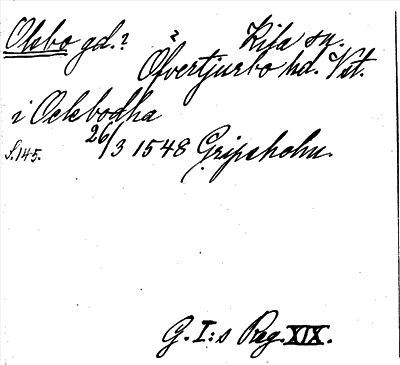 Okbo gd.? ? Kila sn.
Öfvertjurbo hd. Vst.
i Ockbodha
S. 145. 26/3 1548 Gripsholm.
G. I:s Reg. XIX.